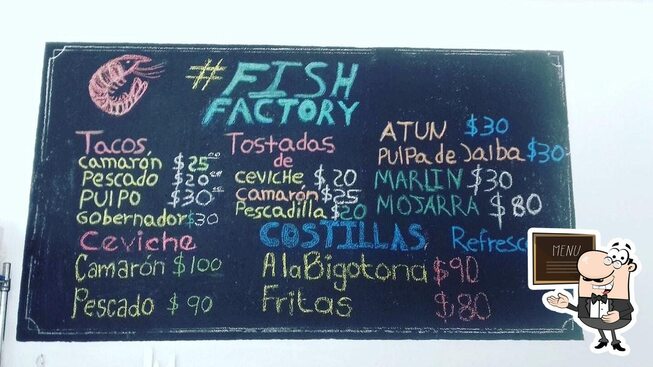 #FISH
FACTORY
Tacos
Camarón $25
Pescado $20
PULPO $30
Gobernador $30
Tostadas
de
CEVICHE $20
CAMARÓN $25
Pescadilla $20
ATUN $30
PulPa de Jaiba $30
MARLIN $30
MOJARRA $80
Ceviche
Camarón $100
Pescado $90
COSTILLAS
A la Bigotona $90
Fritas $80
MENU